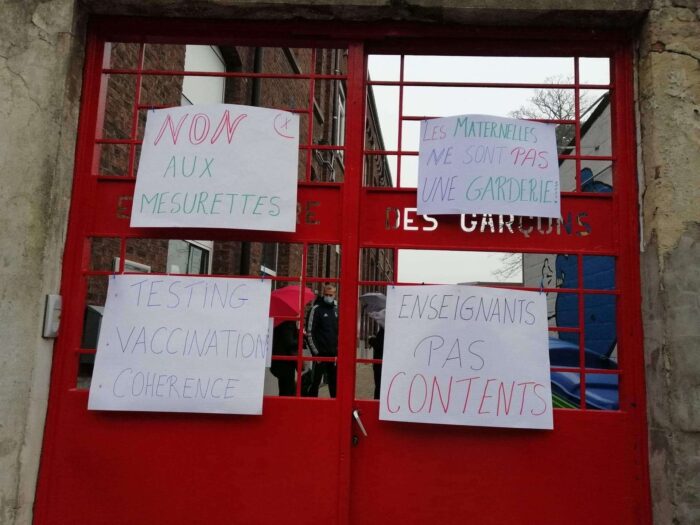 NON
AUX
MESURETTES
LES MATERNELLES
NE SONT PAS
UNE GARDERIE!
DES GARÇONS
TESTING
VACCINATION
COHERENCE
ENSEIGNANTS
PAS
CONTENTS